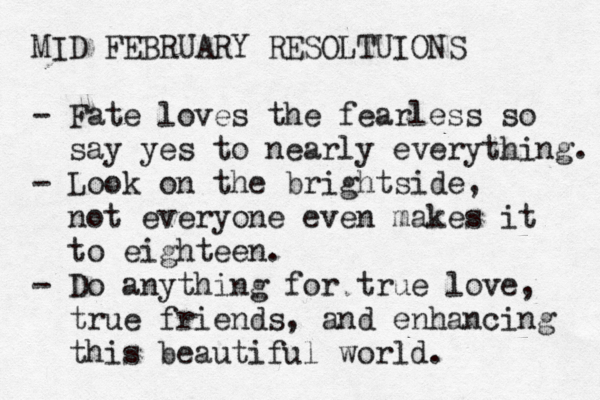 MID FEBRUARY RESOLTUIONS
- Fate loves the fearless so
say yes to nearly everything.
- Look on the brightside,
not everyone even makes it
to eighteen.
- Do anything for true love,
true friends, and enhancing
this beautiful world.